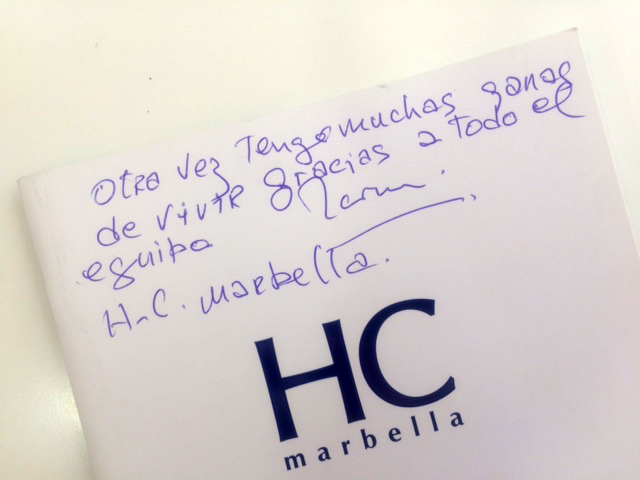 Otra vez Tengo muchas ganas
de vivir gracias a Todo el
equipo
H.C. Marbella.
HC
marbella